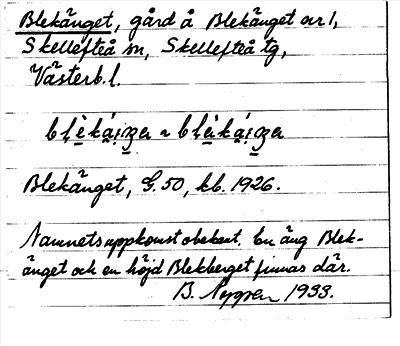 Blekänget, gård å Blekänget nr 1,
Skellefteå sn, Skellefteå tg,
Västerb. l.
Blekänget, G. 50, kb. 1926.
Namnets uppkomst obekant. En äng Blek-
änget och en höjd Blekberget finnas där.
B. 1933.